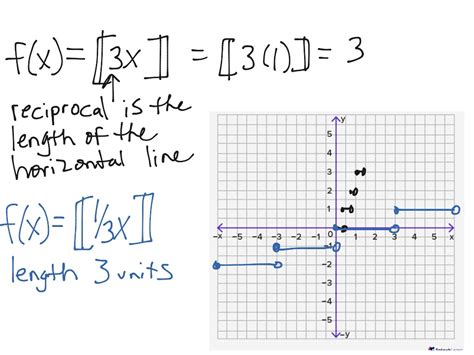 f(x) = [[3x]] = [[3(1)]] = 3
reciprocal is the
length of the
horizontal line
f(x) = [[1/3x]]
length 3 units
y
5
4
3
2
1
-x -5 -4 -3 -2 -1 0 1 2 3 4 5 x
-1
-2
-3
-4
-5
-y